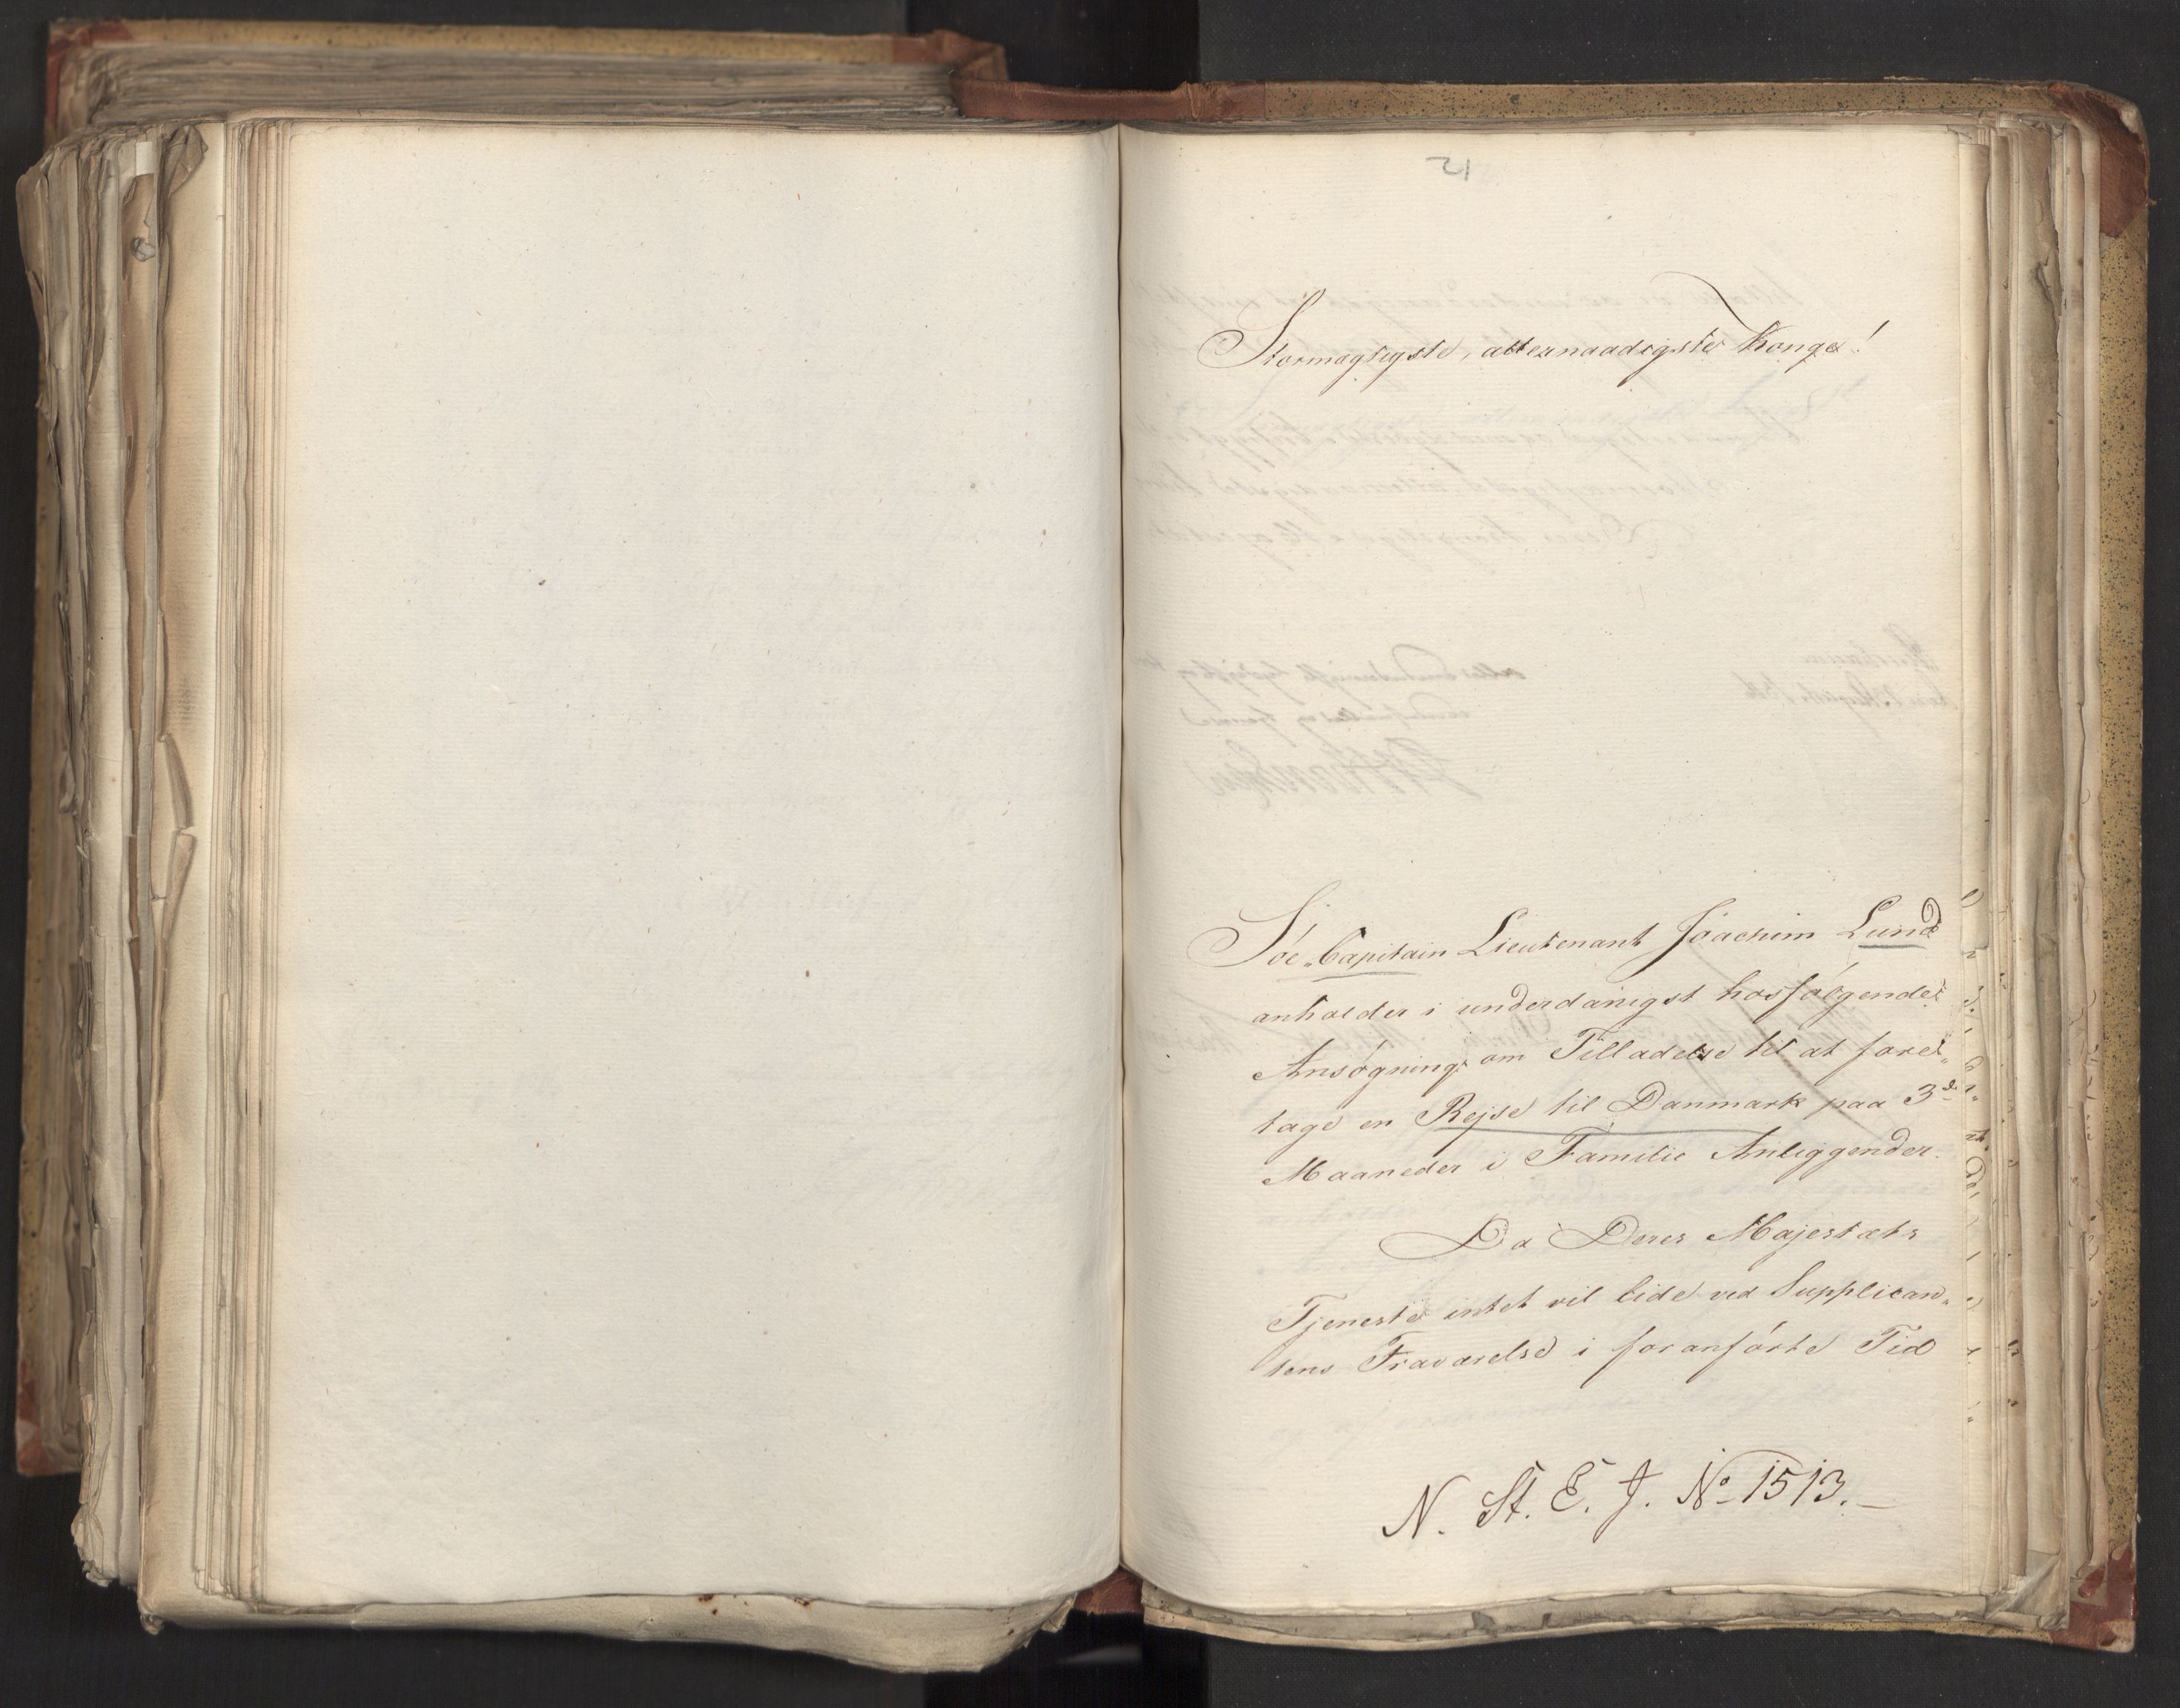 21
Stormægtigste, allernaadigste Konge!
Søe-Capitain Lieutenant Joachim Lund
anholder i underdanigst hosfølgende
Ansøgning om Tilladelse til at fore„
tage en Rejse til Danmark paa 3de
Maaneder i Familie Anliggender.
Da Deres Majestæts
Tjeneste intet vil lide ved Supplican„
tens Fraværelse i foranførte Tid
N. St. E. J. No 1513.